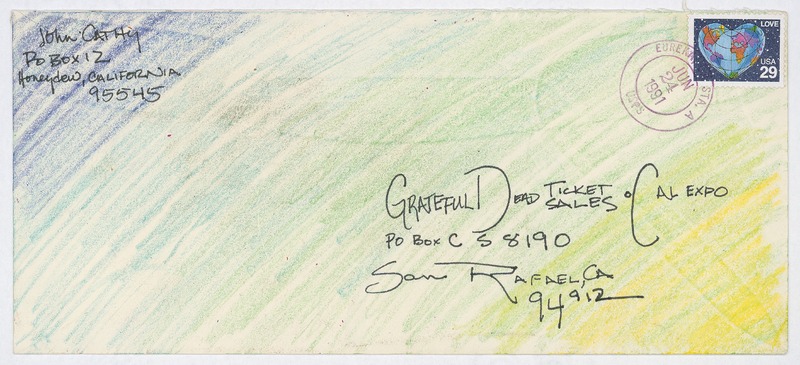 John Cathey
PO BOX 12
Honeydew, CALIFORNIA
95545
LOVE
USA
29
EUREKA
STA. A
JUN
24
1991
USPS
GRATEFUL DEAD TICKET SALES • CAL EXPO
PO BOX C S 8190
San RAFAEL, CA
94912